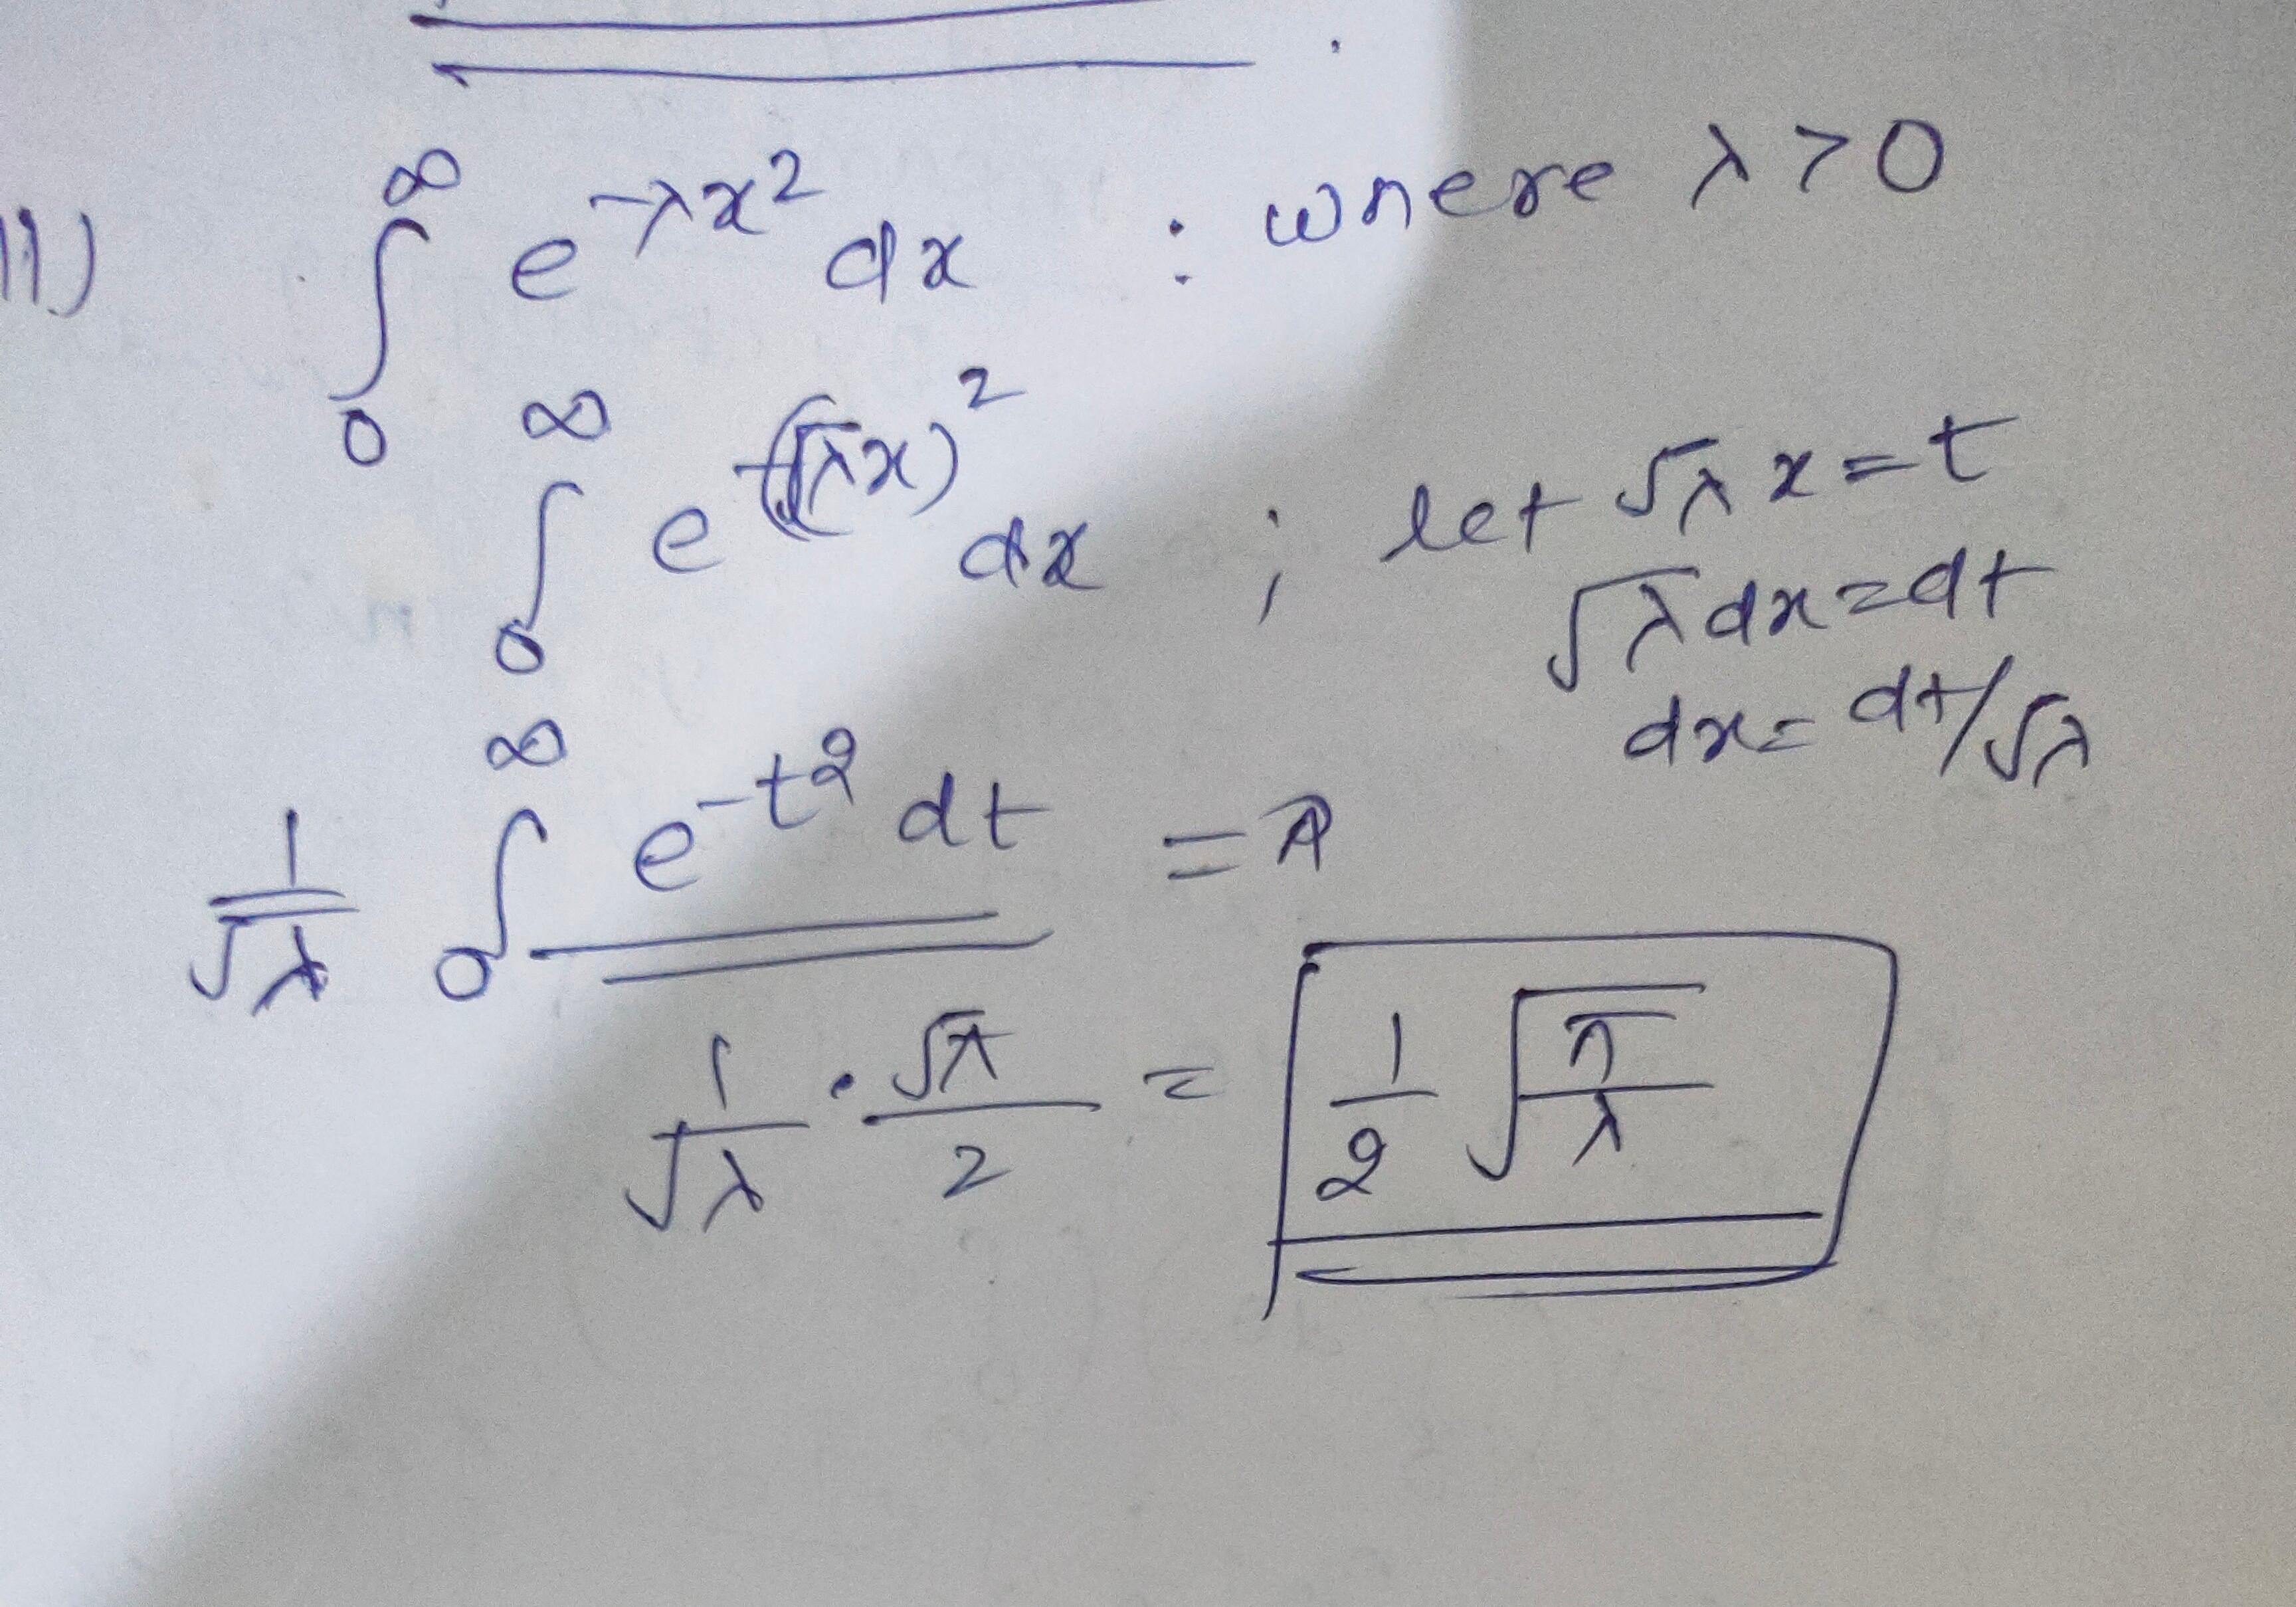 11) ∫₀^∞ e^{-λx²} dx : where λ > 0
∫₀^∞ e^{-(√λx)²} dx ; let √λ x = t
√λ dx = dt
dx = dt/√λ
1/√λ ∫₀^∞ e^{-t²} dt =
1/√λ · √π/2 = 1/2 √(π/λ)